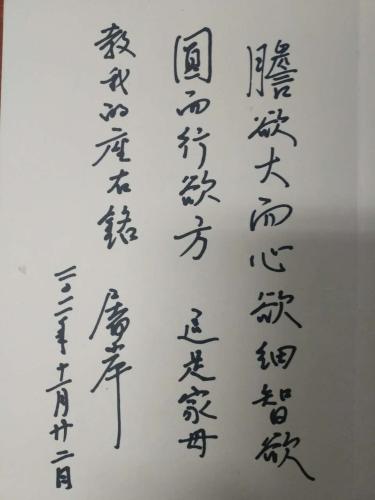 膽欲大而心欲細智欲
圓而行欲方 這是家母
教我的座右銘 屠岸
二〇一一年十一月廿二日